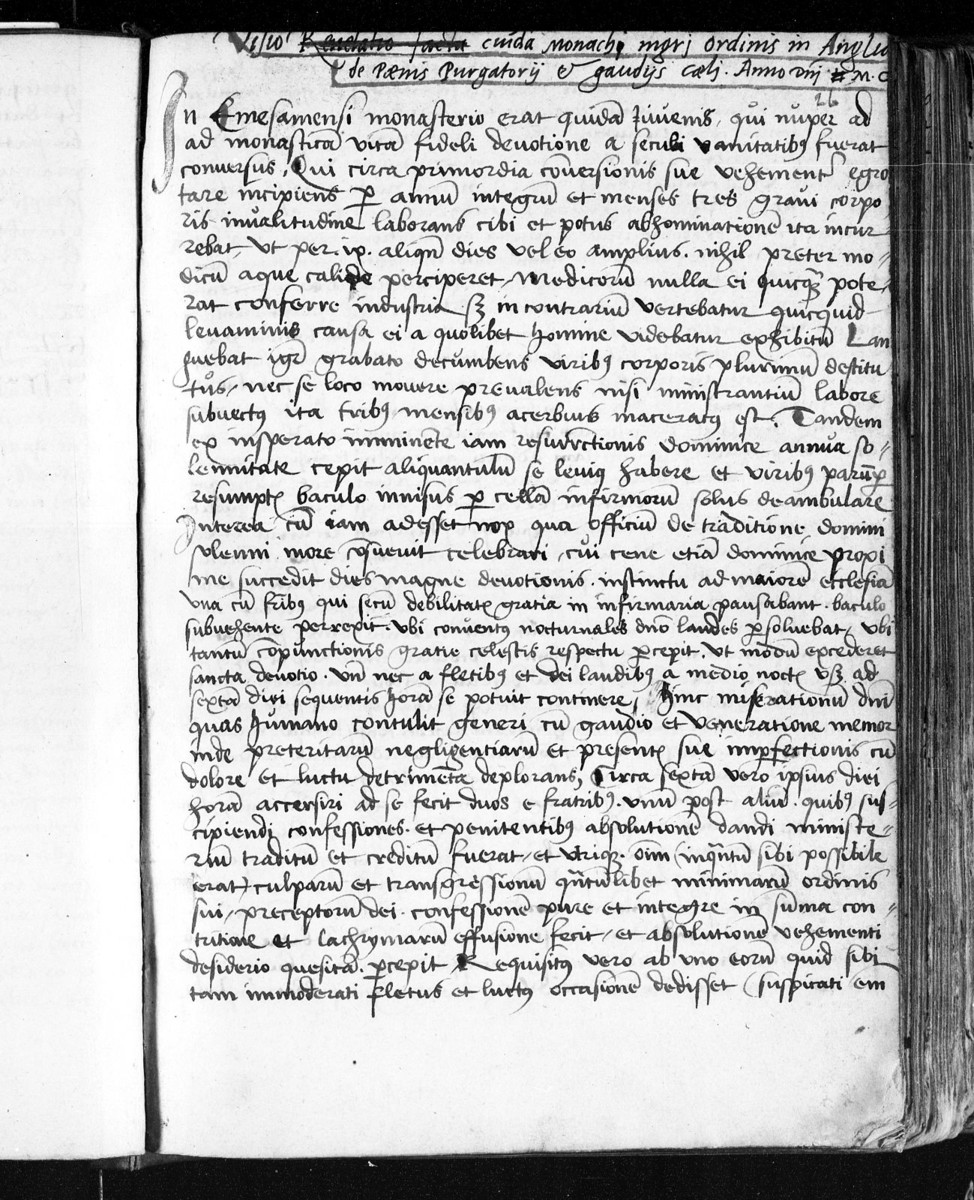 Visio Revelatio facta cuidā Monachi nigri ordinis in Anglia
de Pœnis Purgatorij & gaudijs cæli. Anno Dnj M. C
26
In Emesamensi monasterio erat quidā iuvenis, qui nuper ad
ad monasticā vitā fideli devotione a seculi vanitatibꝯ fuerat
conversus, Qui circa primordia cōversionis sue vehement egro
tare incipiens ꝑ annū integrū et menses tres gravi corpo,
ris invalitudine laborans cibi et potus abhominationē ita incur-
rebat, vt per .ix. aliqn̄ dies vel eo amplius. nihil preter mo-
dicū aque calide perciperet, Medicorū nulla ei quicꝗ̄ pote,
rat conferre industria sꝫ in contrariū vertebatur quicquid
levaminis causa ei a quolibet homine videbatur exhibitū Lan
guebat igr̄ grabato decumbens viribꝯ corporis plurimū destitu
tus, nec se loco movere prevalens nisi ministrantiū labore
subvectꝯ ita tribꝯ mensibꝯ acerbius maceratꝯ est. Tandem
ex insperato imminēte iam resurrectionis dominice annua so-
lennitate cepit aliquantulū se leviꝯ habere et viribꝯ parūꝑ
resumptꝭ baculo innisus ꝑ cellā infirmorū solus deambulare
Interea cū iam adesset nox qua officiū de traditione domini
solenni more cōsuevit celebrari, cui cene etiā dominice proxi
me succedit dies magne devotionis. instinctu ad maiorē ecclesiā
vna cū fribꝯ qui secū debilitatꝭ gratia in infirmaria pausabant. baculo
subvehente perrexit. vbi conventꝯ nocturnales dn̄o laudes ꝑsoluebat, vbi
tantū cōpunctionis gratie celestis respectu ꝑcepit, vt modū excederet
sancta devotio. vn̄ nec a fletibꝯ et dei laudibꝯ a medio noctꝭ vsꝫ ad
sextā diei sequentis horā se potuit continere, Hinc miserationū dn̄i
quas humano contulit generi cū gaudio et veneratione memor
inde preteritarū negligentiarū et presentꝭ sue imꝑfectionis cū
dolore et luctu detrimēta deplorans, Circa sextā vero ipsius diei
horā accersiri ad se fecit duos e fratribꝯ. vnū post aliū. quibꝯ sus-
cipiendi confessiones. et penitentibꝯ absolutionē dandi ministe-
riū traditū et creditū fuerat, et vtriqꝫ. oīm (inqn̄tū sibi possibile
erat) culparū et transgressionū qn̄tulibet minimarū ordinis
sui, preceptorū dei. confessionē pure et integre in sūma con-
tritione et lachrymarū effusione fecit, et absolutionē vehementi
desiderio quesitā. ꝑcepit Requisitꝯ vero ab vno eorū quid sibi
tam immoderati fletus et luctꝯ occasionē dedisset (suspicati em̄